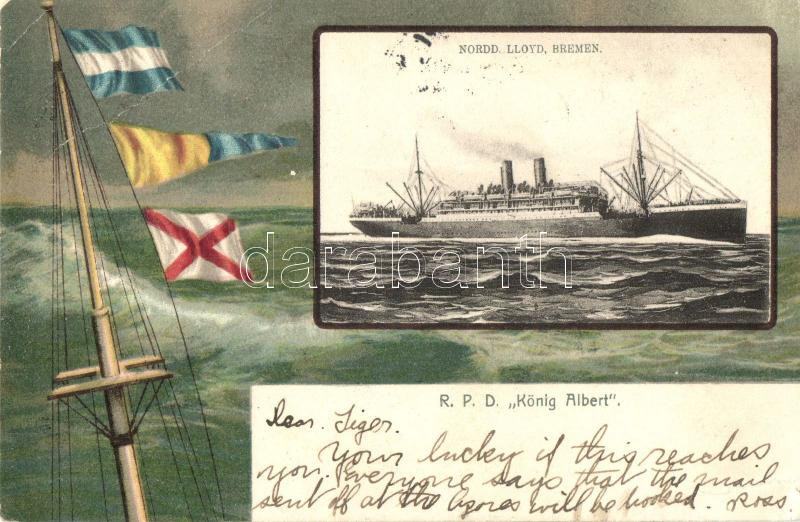 NORDD. LLOYD, BREMEN.
darabanth
R. P. D. „König Albert".
Dear. Tiger.
Your lucky if this reaches
you. Everyone says that the mail
sent off at the Azores will be hooked. Ross